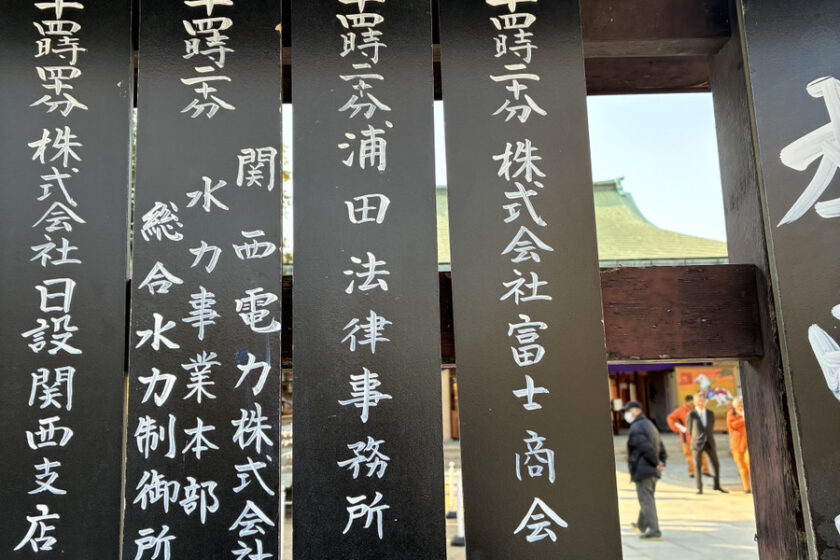 十四時二十分 株式会社富士商会
十四時二十分 浦田法律事務所
十四時二十分
関西電力株式会社
水力事業本部
総合水力制御所
十四時四十分 株式会社日設関西支店